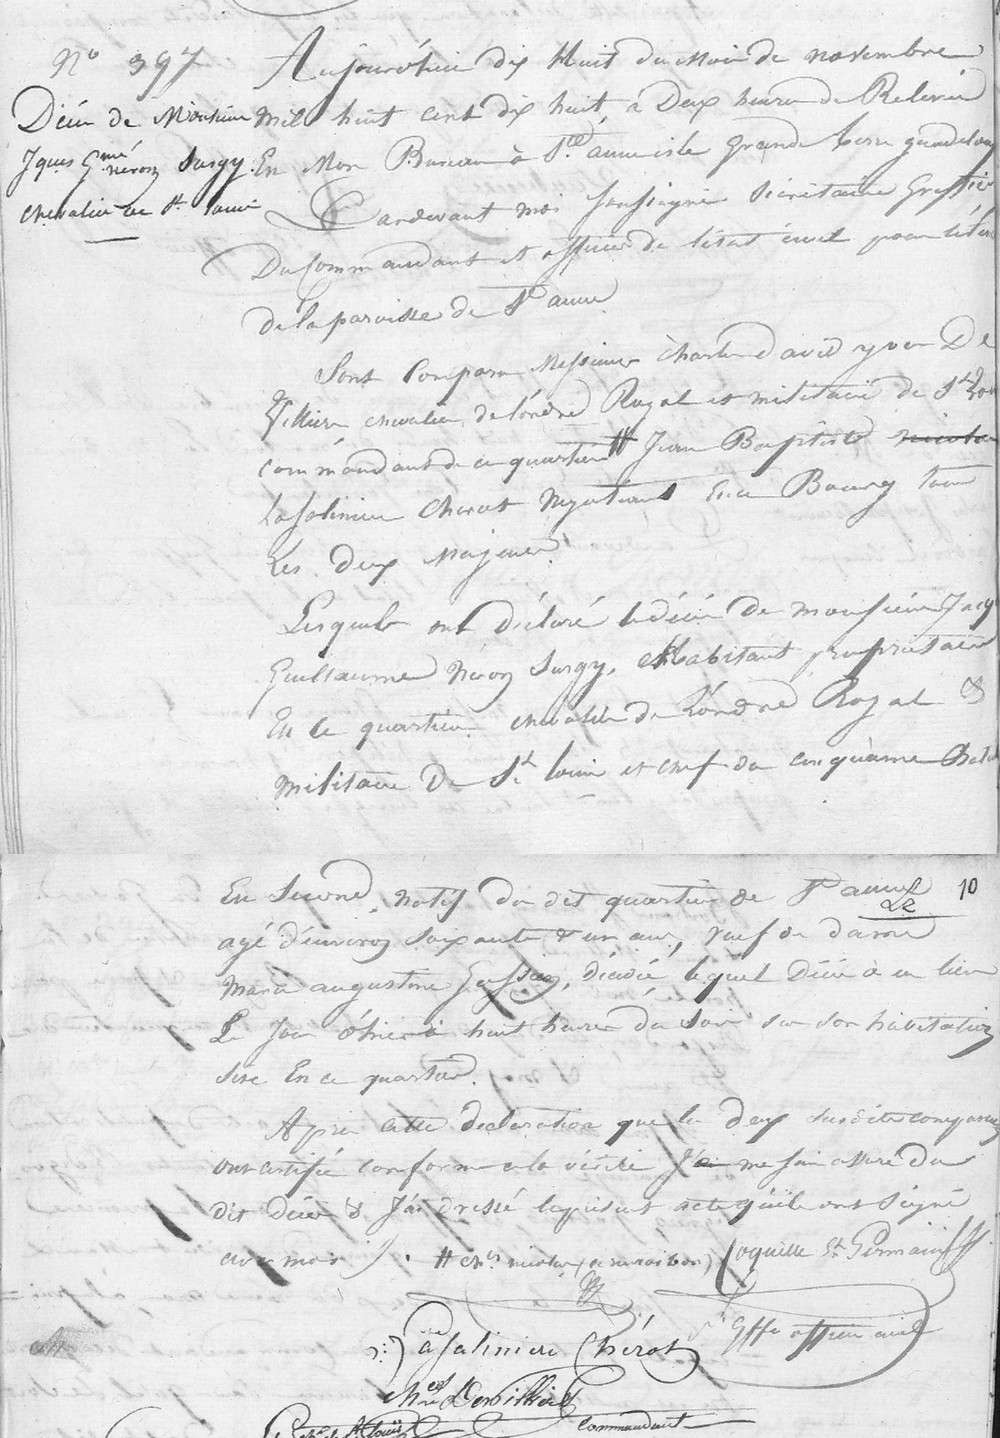 N° 397
Décès de Monsieur
Jques Gme néron Surgy
chevalier de St Louis
Aujourd'hui dix Huit du mois de novembre
Mil huit cent dix huit, a Deux heures de Relevée
En Mon Bureau à Ste anne isle Grande terre guadeloup
Pardevant moi soussigné Sécrétaire Greffier
Du Commandant et officier de l'état civil pour l'éten
de la paroisse de Ste anne
Sont Comparu Messieurs Charles david yvon De
Villiers chevalier de l'ordre Royal et militaire de St Lou
commandant de ce quartier # Jean Baptiste nicolas
Lasalinière Cherot Negotiant En ce Bourg tous
Les deux Majeurs
Lesquels ont déclaré le décès de monsieur Jacq
Guillaume Néron Surgy, habitant propriétaire
En ce quartier chevalier de L'ordre Royal &
militaire de St Louis et chef du cinquième Batail
En Second, natif du dit quartier de Ste anne
10
agé d'environ soixante & un ans, veuf de dame
Maria augustine, décédé, lequel Décés à eu lieu
Le Jour d'hier à huit heures du soir sur son habitation
sise En ce quartier.
Après cette déclaration que les deux susdits comparus
ont certifié conforme a la vérité Je me suis assuré du
dit décès & J'ai dressé le présent acte qu'ils ont Signé
avec moi. # ers nicolas (a raison bon) Coquille St Germain
Gffr officier civil
Lasalinière Chérot
Ches Devilliers
Chr de St Louis commandant